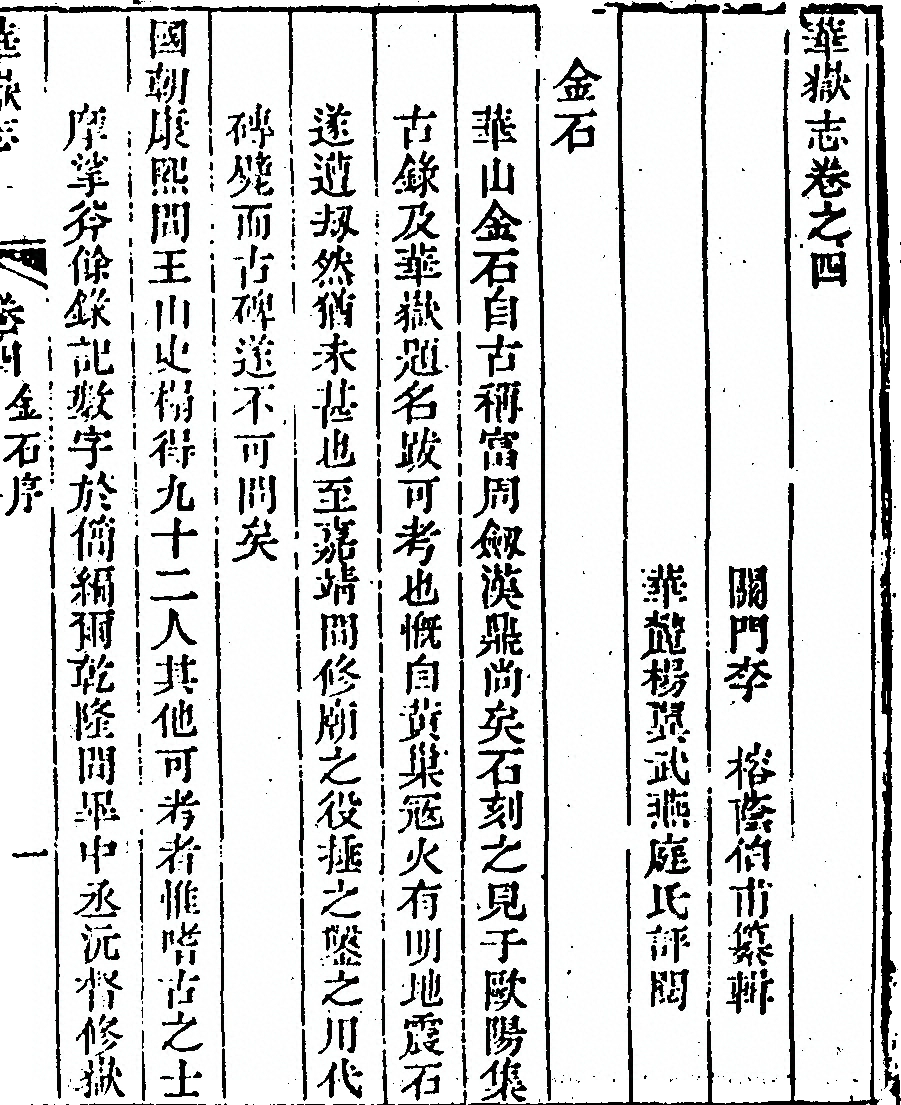 華嶽志卷之四
關門李　榕蔭伯甫纂輯
華麓楊翼武燕庭氏評閱
金石
華山金石自古稱富周劔漢鼎尚矣石刻之見于歐陽集
古錄及華嶽題名跋可考也慨自黃巢寇火有明地震石
遂遭刼然猶未甚也至嘉靖間修廟之役捶之鑿之用代
磚甓而古碑遂不可問矣
國朝康熙間王山史搨得九十二人其他可考者惟嗜古之士
摩挲劵餘錄記數字於簡編爾乾隆間畢中丞沅督修嶽
華嶽志
卷四
金石序
一